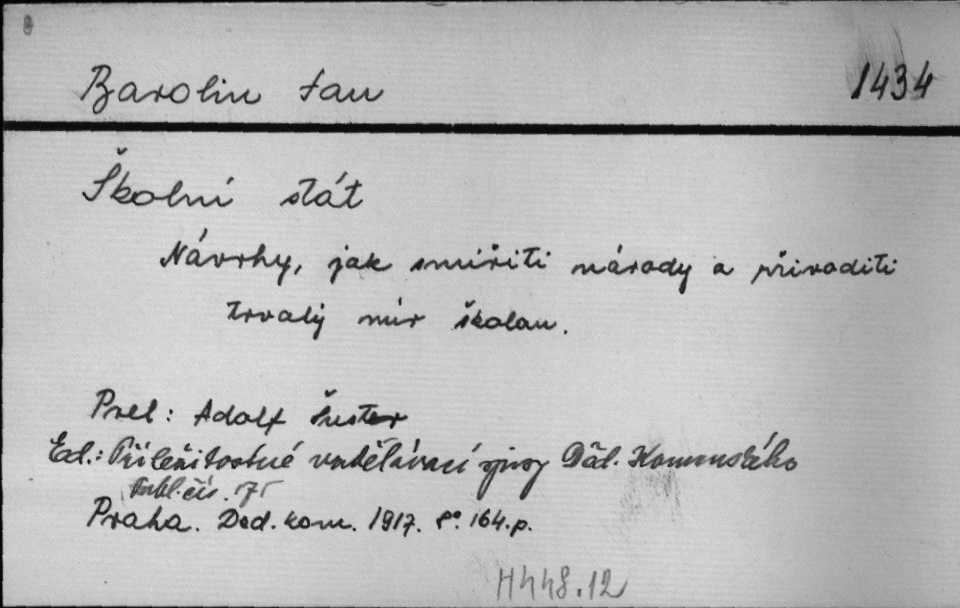 Barolin Jan 1434
Školní stát
Návrhy, jak smířiti národy a přivoditi
trvalý mír školou.
Přel: Adolf Šuster
Ed.: Příležitostné vzdělávací spisy Děd. Komenského
Publ. čís. 175
Praha. Ded. kom. 1917. 8º. 164. p.
H448.12